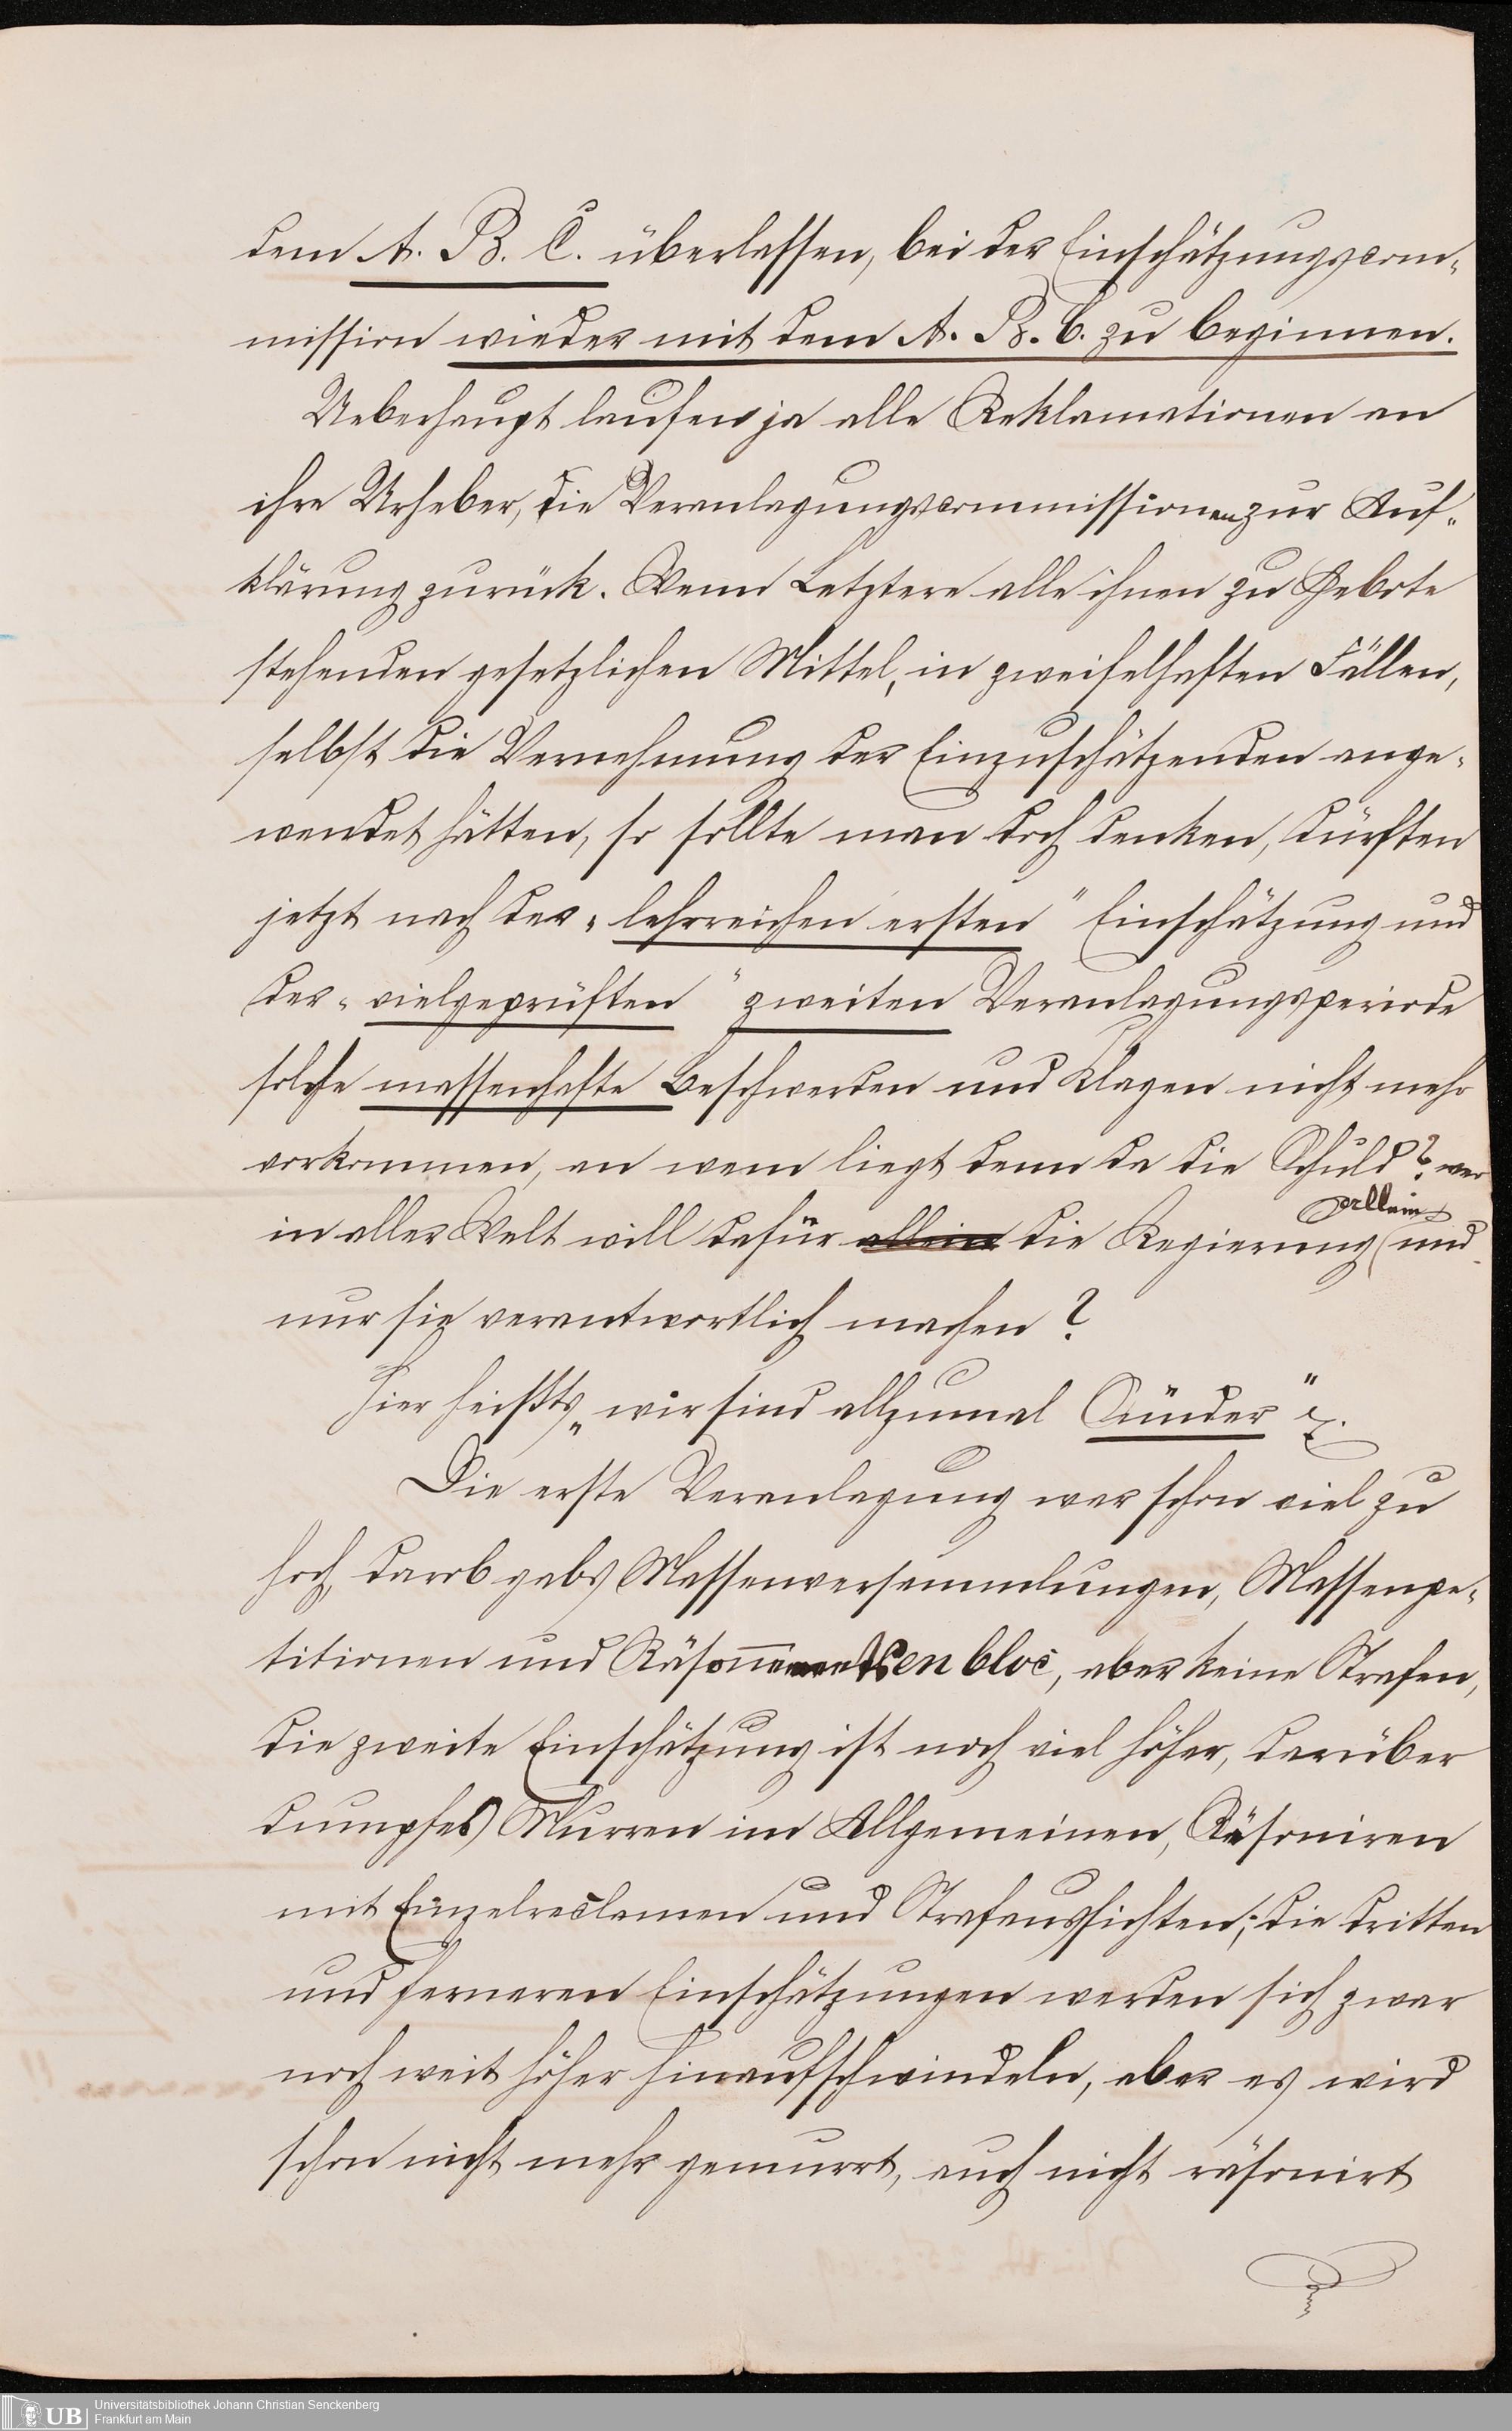 dem A. B. C. überlassen, bei der Einschätzungscom-
mission wieder mit dem A. B. C. zu beginnen.
Ueberhaupt laufen ja alle Reklamationen an
ihre Urheber, die Veranlagungscommissionen zur Auf-
klärung zurück. Wenn Letztere alle ihnen zu Gebote
stehenden gesetzlichen Mittel, in zweifelhaften Fällen,
selbst die Vernehmung der Einzuschätzenden ange-
wendet hätten, so sollte man doch denken, dürften
jetzt nach der "lehrreichen ersten" Einschätzung und
der "vielgeprüften" zweiten Veranlagungsperiode
solche massenhafte Beschwerden und Klagen nicht mehr
vorkommen, an wem liegt denn da die Schuld? wer
allein
in aller Welt will dafür allein die Regierung und
nur sie verantwortlich machen?
Hier heißts "wir sind allzumal Sünder" z.
Die erste Veranlagung war schon viel zu
hoch, darob gabs Massenversammlungen, Massenpe-
titionen und Räsonnements en bloc, aber keine Strafen,
die zweite Einschätzung ist noch viel höher, darüber
dumpfes Murren im Allgemeinen, Räsoniren
mit Einzelreclamen und Strafaussichten; die dritten
und ferneren Einschätzungen werden sich zwar
noch weit höher hinaufschwindeln, aber es wird
schon nicht mehr gemurrt, auch nicht räsonirt
UB
Universitätsbibliothek Johann Christian Senckenberg
Frankfurt am Main